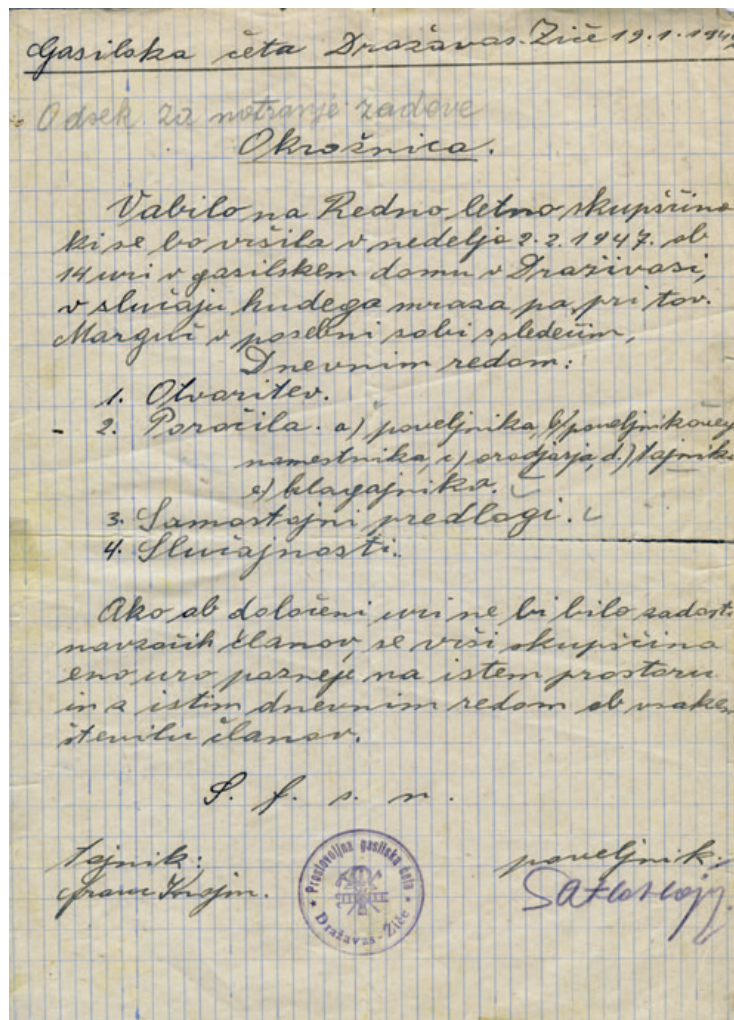 Gasilska četa Dražavas-Žiče 19.1.1947
Odsek za notranje zadove
Okrožnica.
Vabilo na Redno letno skupščino
ki se bo vršila v nedeljo 2.2.1947. ob
14 uri v gasilskem domu v Draživasi,
v slučaju hudega mraza pa, pri tov.
Marguč v posebni sobi s sledečim,
Dnevnim redom:
1. Otvoritev.
- 2. Poročila. a) poveljnika, b) poveljnikovega
namestnika, c) orodjarja, d.) tajnika
e) blagajnika.
3. Samostojni predlogi.
4. Slučajnosti.
Ako ob določeni uri ne bi bilo zadosti
navzočih članov, se vrši skupščina
eno uro pozneje na istem prostoru
in z istim dnevnim redom ob vsakem
številu članov.
S. f. s. n.
tajnik: poveljnik:
Prostovoljna gasilska četa
Dražavas-Žiče